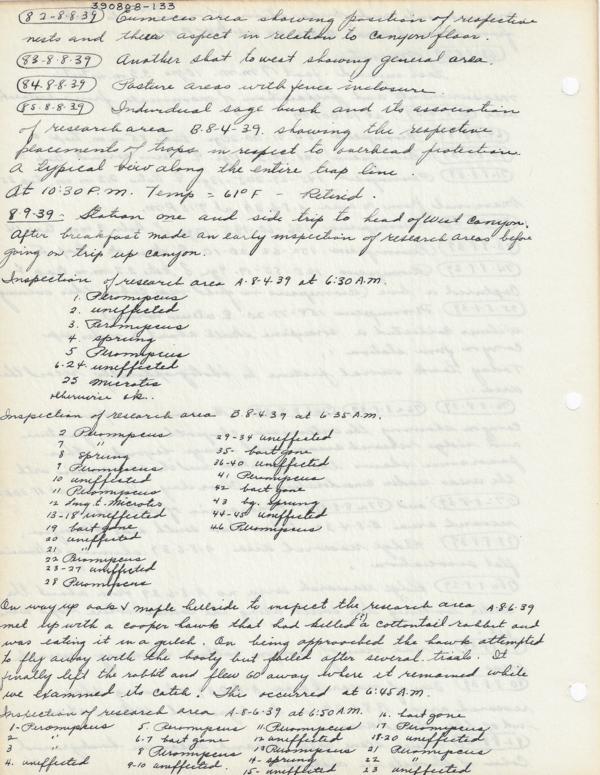 390808-133
82-8-8-39 Eumeces area showing position of respective
nests and their aspect in relation to canyon floor.
83-8-8-39 Another shot to west showing general area.
84-8-8-39 Pasture areas with fence inclosure.
85-8-8-39 Individual sage bush and its association
of research area B-8-4-39. showing the respective
placements of traps in respect to overhead protection.
A typical view along the entire trap line.
At 10:30 P.M. Temp = 61°F - Retired
8-9-39- Station one and side trip to head of West Canyon.
After breakfast made an early inspection of research areas before
going on trip up canyon.
Inspection of research area A-8-4-39 at 6:30 A.M.
1. Peromyscus
2. uneffected
3. Peromyscus
4. sprung
5 Peromyscus
6-24. uneffected
25 Microtis
otherwise ok..
Inspection of research area B.8-4-39 at 6:35 A.M.
2 Peromyscus
7 "
8 sprung
9 Peromyscus
10 uneffected
11 Peromyscus
12 Microtis
13-18 uneffected
19 bait gone
20 uneffected
21 "
22 Peromyscus
23-27 uneffected
28 Peromyscus
29-34 uneffected
35- bait gone
36-40 uneffected
41 Peromyscus
42 bait gone
43 by sprung
44-45 uneffected
46 Peromyscus
On way up oak & maple hillside to inspect the research area A-8-6-39
met up with a cooper hawk that had killed a cottontail rabbit and
was eating it in a gulch. On being approached the hawk attempted
to fly away with the booty but failed after several trials. It
finally left the rabbit and flew 60' away where it remained while
we examined its catch. This occurred at 6:45 A.M.
Inspection of research area A-8-6-39 at 6:50 A.M.
1- Peromyscus
2 "
3 "
4. uneffected
5. Peromyscus
6-7 bait gone
8 Peromyscus
9-10 uneffected
11- Peromyscus
12 uneffected
13 Peromyscus
14- sprung
15- uneffected
16. bait gone
17 Peromyscus
18-20 uneffected
21 Peromyscus
22 "
23 uneffected